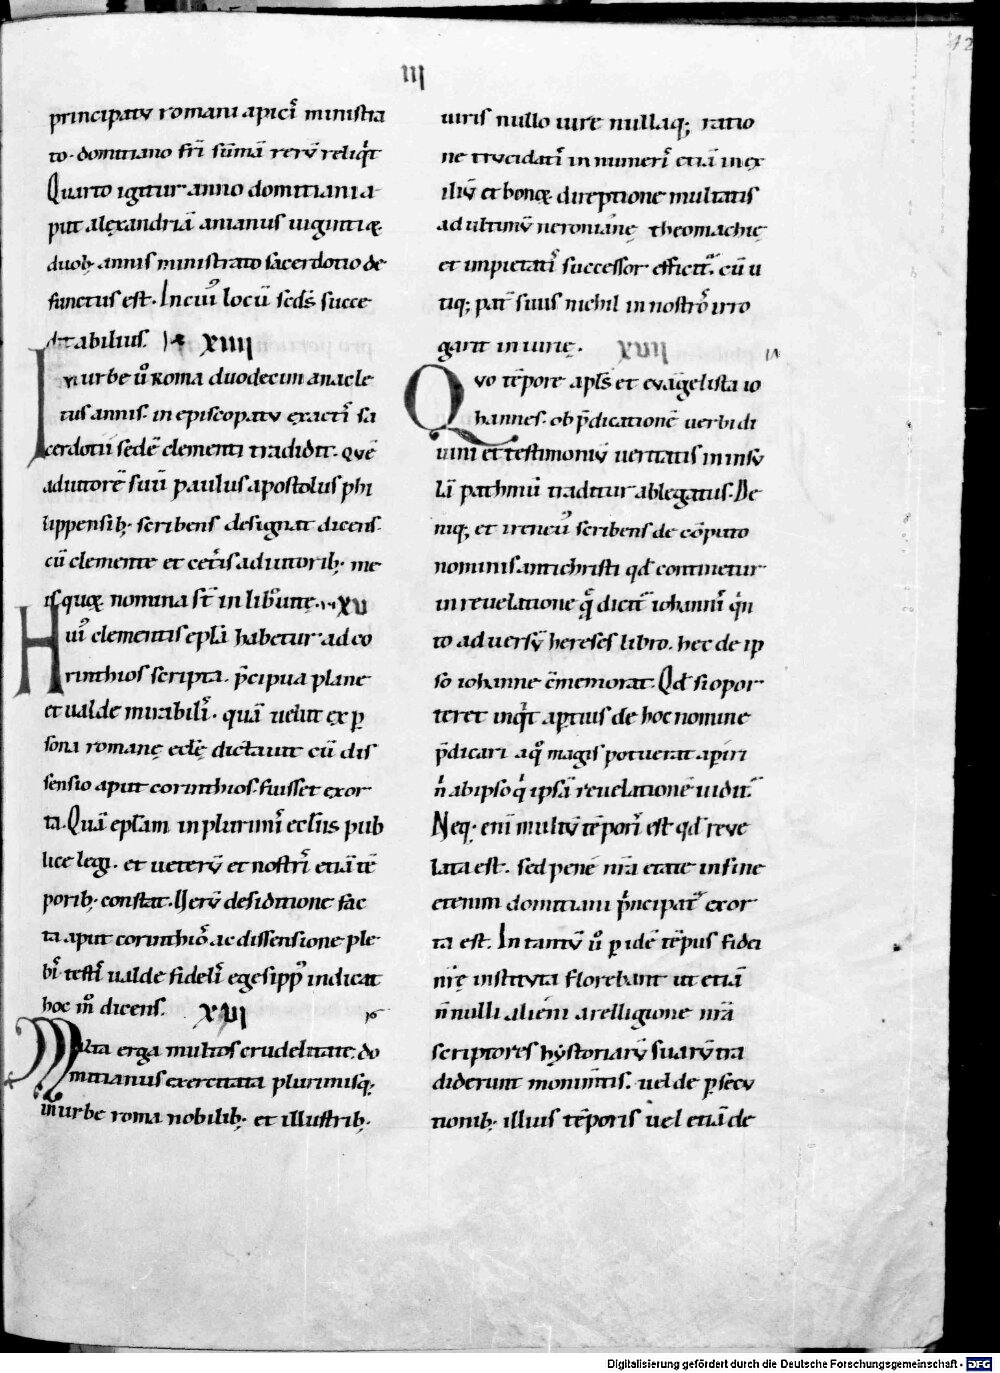 III
12
principatu romani apicī ministra
to. domitiano frī sūmā rerū reliqͥt
Quarto igitur anno domitiani a
put alęxandriā anianus uigintiq;
duob; annis ministrato sacerdotio de
functus est. In cui᾽ locū scd̄s succe
dit abilius. XIIII
In urbe ů roma duodecim anacle
tus annis. in episcopatu exactī sa
cerdotii sedē clementi tradidit. quē
adiutorē suū paulus apostolus phi
lippensib; scribens designat dicens.
cū clemente et cet̄is adiutorib; me
is quoȩ nomina st̄ in lib° uitę. XV
Hui᾽ clementis ep̄la habetur ad co
rinthios scripta. p̄cipua plane
et ualde mirabilī. quā uelut ex p̱
sona romanę ecl̄ę dictauit cū dis
sensio aput corinthios. fuisset exor
ta. Quā epl̄am in plurimī ecl̄iis pub
lice legi. et ueterū et nostrī etiā tē
porib; constat. Uerū de siditione fac
ta aput corinthiō ac dissensione ple
bī testī ualde fidelī egesipp᾽ indicat
hoc m̊ dicens. XVI
Multa erga multos crudelitate. do
mitianus exercitata plurimisq;
in urbe roma nobilib; et illustrib;
uiris nullo iure nullaq; ratio
ne trucidatī innumerī etiā in ex
iliū et bonoȩ direptione multatis
ad ultimū neronianę theomachię
et impietatī successor efficit᷑. cū u
tiq; pat̄ suus nichil in nostrō irro
garit iniurię. XVII
Quo tēpore apl̄s et euāgelista io
hannes. ob p̄dicationē uerbi di
uini et testimoniū ueritatis in insu
lā pathmū traditur ablegatus. De
niq; et ireneu᾽ scribens de cōputo
nominis antichristi qd̄ continetur
in reuelatione q̄ dicit᷑ iohannī qͥn
to aduersū hereses libro. hec de ip
so iohanne c̄memorat. Qd̄ si opor
teret inqͥt ap̱tius de hoc nomine
p̄dicari a qͦ magis potuerat ap̱iri
n̄ ab ipso qͥ ipsā reuelationē uidit.
Neq; enī multū tēporī est qd̄ reue
lata est. sed pene nr̄a etate in fine
etenim domitiani pͥncipat᷑ exor
ta est. In tantū ů p̱ idē tēpus fidei
nr̄ę instituta florebant ut etiā
n̄nulli alieni a relligione nr̄a
scriptores hystoriarū suarū tra
diderunt monimītis. uel de p̱secu
tionib; illius tēporis uel etiā de
Digitalisierung gefördert durch die Deutsche Forschungsgemeinschaft - DFG